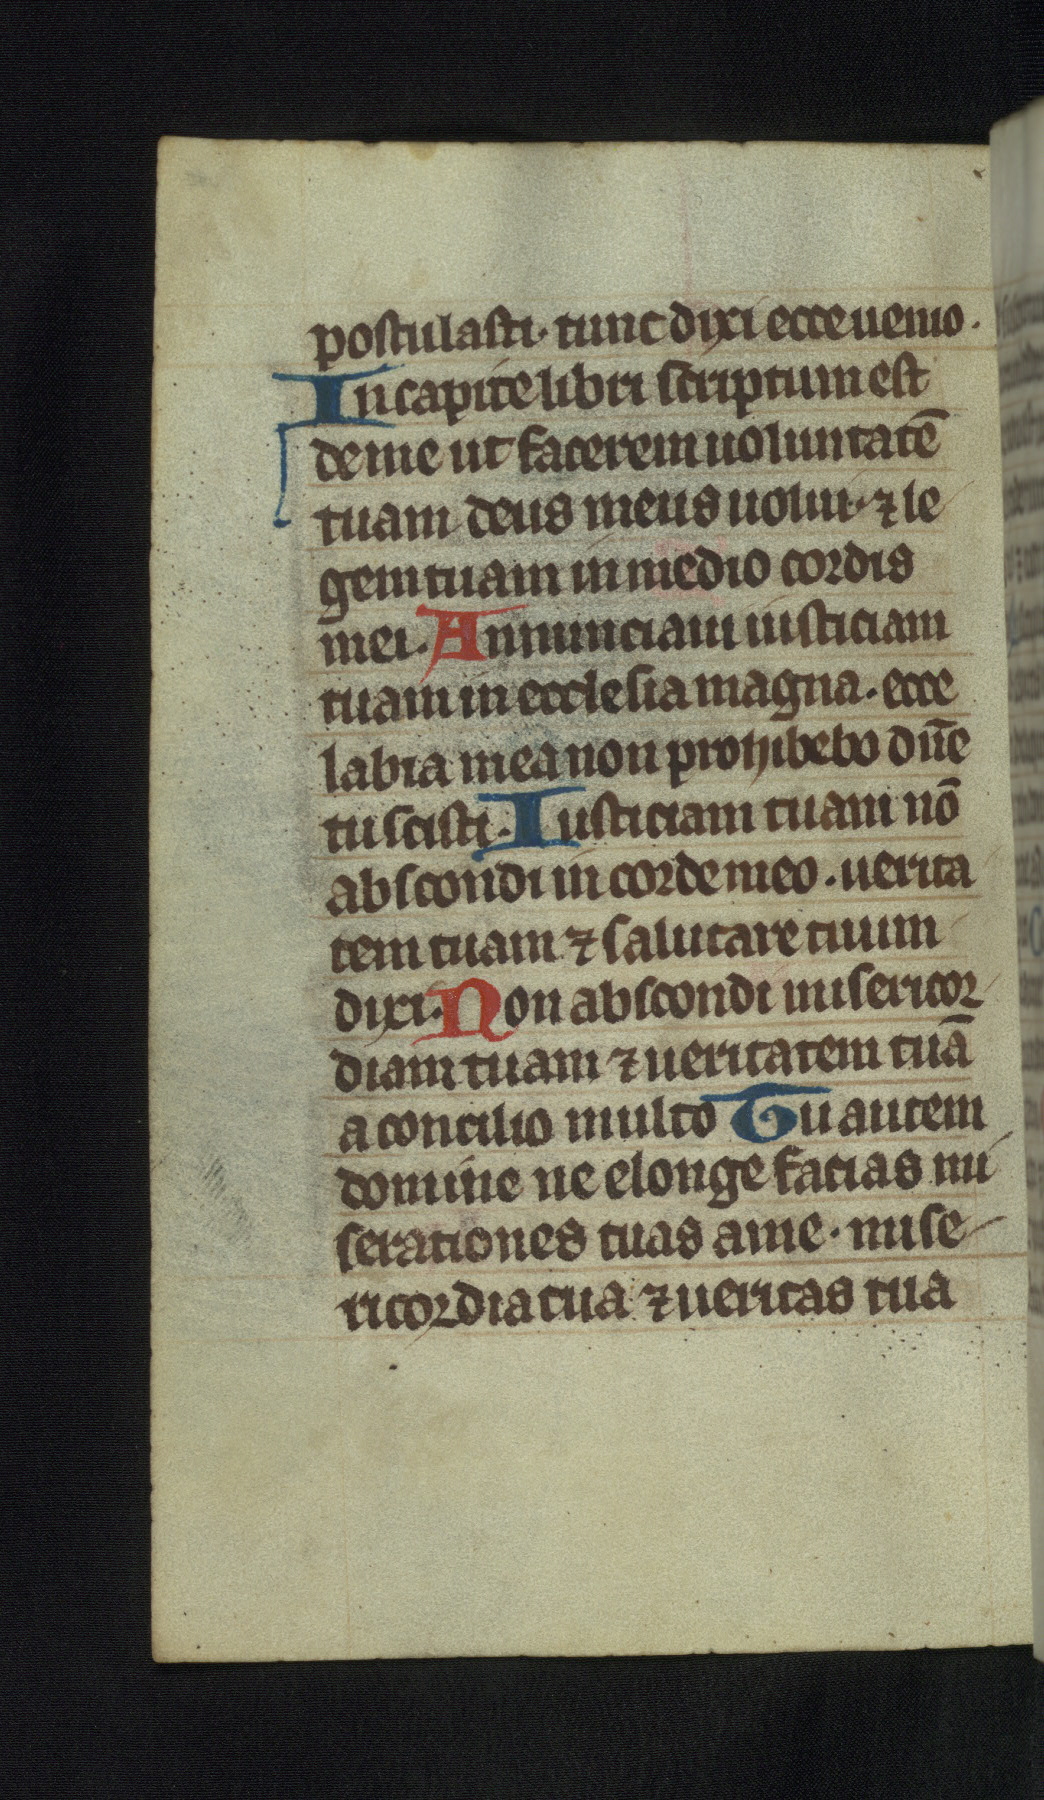 postulasti. tunc dixi ecce uenio.
In capite libri scriptum est
de me ut facerem uoluntatē
tuam deus meus uolui. ⁊ le
gem tuam in medio cordis
mei. Annunciaui iusticiam
tuam in ecclesia magna. ecce
labia mea non prohibebo dn̄e
tu scisti. Iusticiam tuam nō
abscondi in corde meo. uerita
tem tuam ⁊ salutare tuum
dixi. Non abscondi misericor
diam tuam ⁊ ueritatem tuā
a concilio multo Tu autem
domine ne elonge facias mi
serationes tuas a me. mise
ricordia tua ⁊ ueritas tua